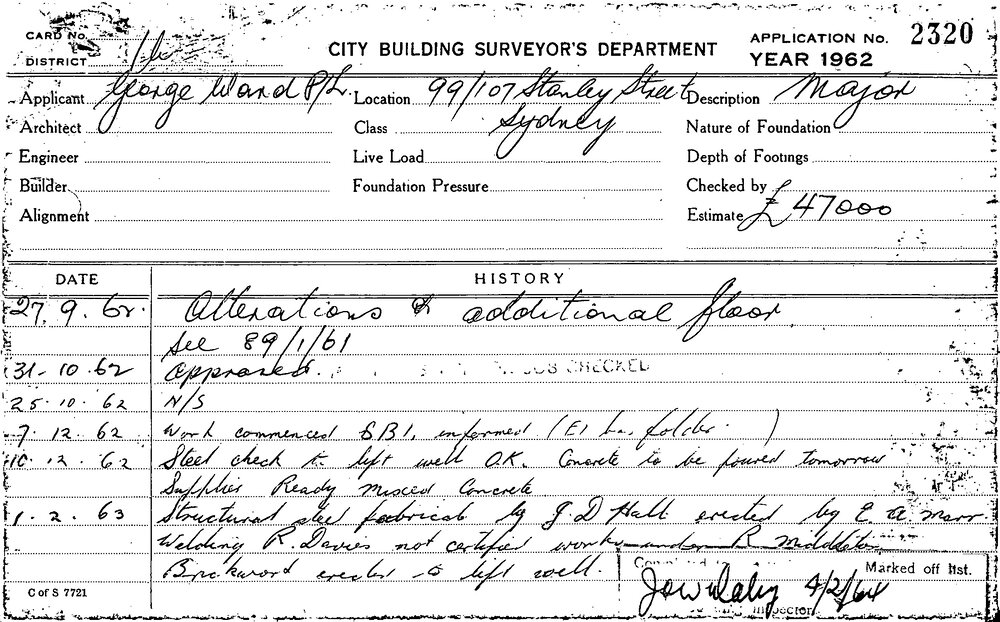 CARD No.
DISTRICT
CITY BUILDING SURVEYOR'S DEPARTMENT
APPLICATION No. 2320
YEAR 1962
Applicant George Ward P/L. Location 99/107 Stanley Street Description Major
Architect Class Sydney Nature of Foundation
Engineer Live Load Depth of Footings
Builder Foundation Pressure Checked by
Alignment Estimate £47000
DATE HISTORY
27.9.62. Alterations & additional floor
See 89/1/61
31-10.62 approved. JOB CHECKED
25.10.62 N/S
7.12.62 Work commenced SBI, informed ( folder. )
10.12.62 Steel check to lift well O.K. Concrete to be poured tomorrow
Supplier Ready mixed Concrete
1.2.63 Structural steel fabricat by J. D Hall erected by E. A. Marr
Welding R. Davies not certified work under R Middleton
Brickword erected to lift well.
Marked off list.
4/2/64
Inspector
C of S 7721